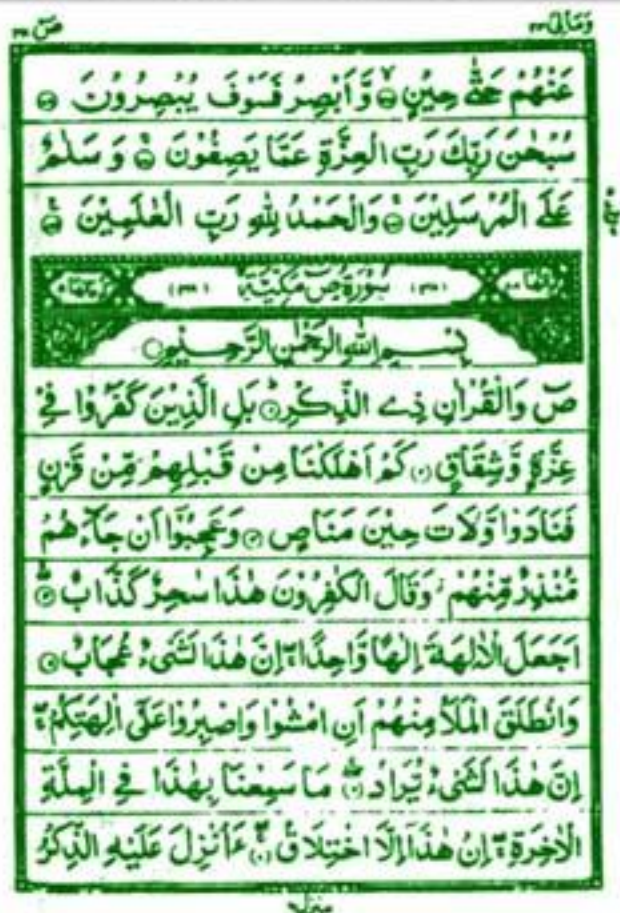 وَمَالِیَ ٢٣
صٓ ٣٨
عَنْهُمْ حَتّٰى حِيْنٍ ۝١٧٨ وَّاَبْصِرْ فَسَوْفَ يُبْصِرُوْنَ ۝١٧٩
سُبْحٰنَ رَبِّكَ رَبِّ الْعِزَّةِ عَمَّا يَصِفُوْنَ ۝١٨٠ وَ سَلٰمٌ
عَلَى الْمُرْسَلِيْنَ ۝١٨١ وَالْحَمْدُ لِلّٰهِ رَبِّ الْعٰلَمِيْنَ ۝١٨٢
سُوْرَةُ صٓ مَكِّيَّةٌ (٣٨) (٣٨)
بِسْمِ اللّٰهِ الرَّحْمٰنِ الرَّحِيْمِ
صٓ وَالْقُرْاٰنِ ذِى الذِّكْرِ ۝١ بَلِ الَّذِيْنَ كَفَرُوْا فِىْ
عِزَّةٍ وَّشِقَاقٍ ۝٢ كَمْ اَهْلَكْنَا مِنْ قَبْلِهِمْ مِّنْ قَرْنٍ
فَنَادَوْا وَّلَاتَ حِيْنَ مَنَاصٍ ۝٣ وَعَجِبُوْۤا اَنْ جَآءَهُمْ
مُّنْذِرٌ مِّنْهُمْ ؗ وَقَالَ الْكٰفِرُوْنَ هٰذَا سٰحِرٌ كَذَّابٌ ۝٤
اَجَعَلَ الْاٰلِهَةَ اِلٰهًا وَّاحِدًا ۚ اِنَّ هٰذَا لَشَىْءٌ عُجَابٌ ۝٥
وَانْطَلَقَ الْمَلَاُ مِنْهُمْ اَنِ امْشُوْا وَاصْبِرُوْا عَلٰٓى اٰلِهَتِكُمْ ۖ
اِنَّ هٰذَا لَشَىْءٌ يُّرَادُ ۝٦ مَا سَمِعْنَا بِهٰذَا فِى الْمِلَّةِ
الْاٰخِرَةِ ۚ اِنْ هٰذَاۤ اِلَّا اخْتِلَاقٌ ۝٧ ءَاُنْزِلَ عَلَيْهِ الذِّكْرُ
منزل